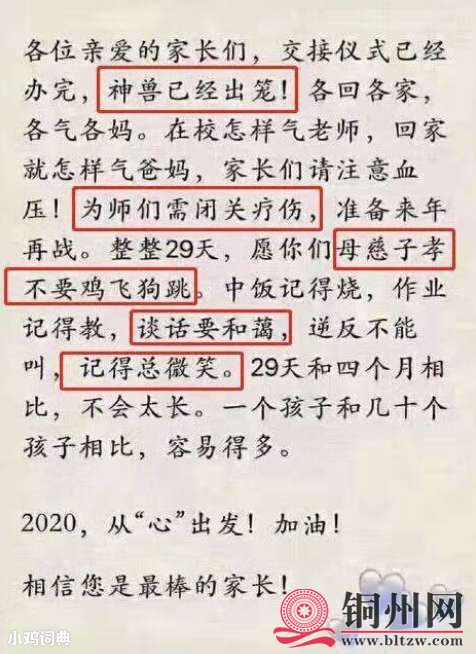 各位亲爱的家长们，交接仪式已经
办完，神兽已经出笼！各回各家，
各气各妈。在校怎样气老师，回家
就怎样气爸妈，家长们请注意血
压！为师们需闭关疗伤，准备来年
再战。整整29天，愿你们母慈子孝
不要鸡飞狗跳。中饭记得烧，作业
记得教，谈话要和蔼，逆反不能
叫，记得总微笑。29天和四个月相
比，不会太长。一个孩子和几十个
孩子相比，容易得多。
2020，从“心”出发！加油！
相信您是最棒的家长！
小鸡词典
铜州网
www.bltzw.com